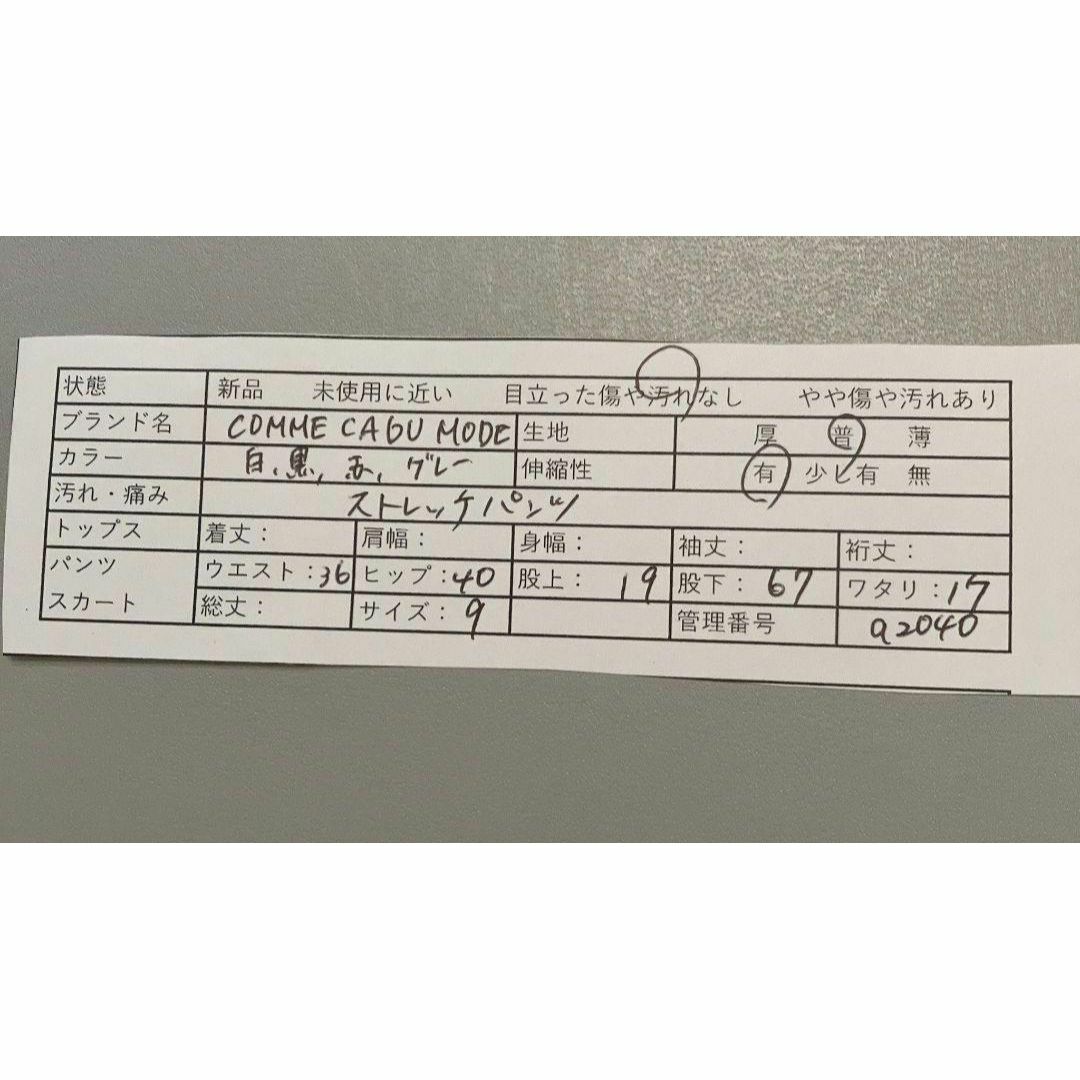 状態 新品 未使用に近い 目立った傷や汚れなし やや傷や汚れあり
ブランド名 COMME CAGU MODE 生地 厚 普 薄
カラー 白、黒、赤、グレー 伸縮性 有 少し有 無
汚れ・痛み ストレッチパンツ
トップス 着丈: 肩幅: 身幅: 袖丈: 裄丈:
パンツ ウエスト:36 ヒップ:40 股上: 19 股下: 67 ワタリ:17
スカート 総丈: サイズ: 9 管理番号 a2040